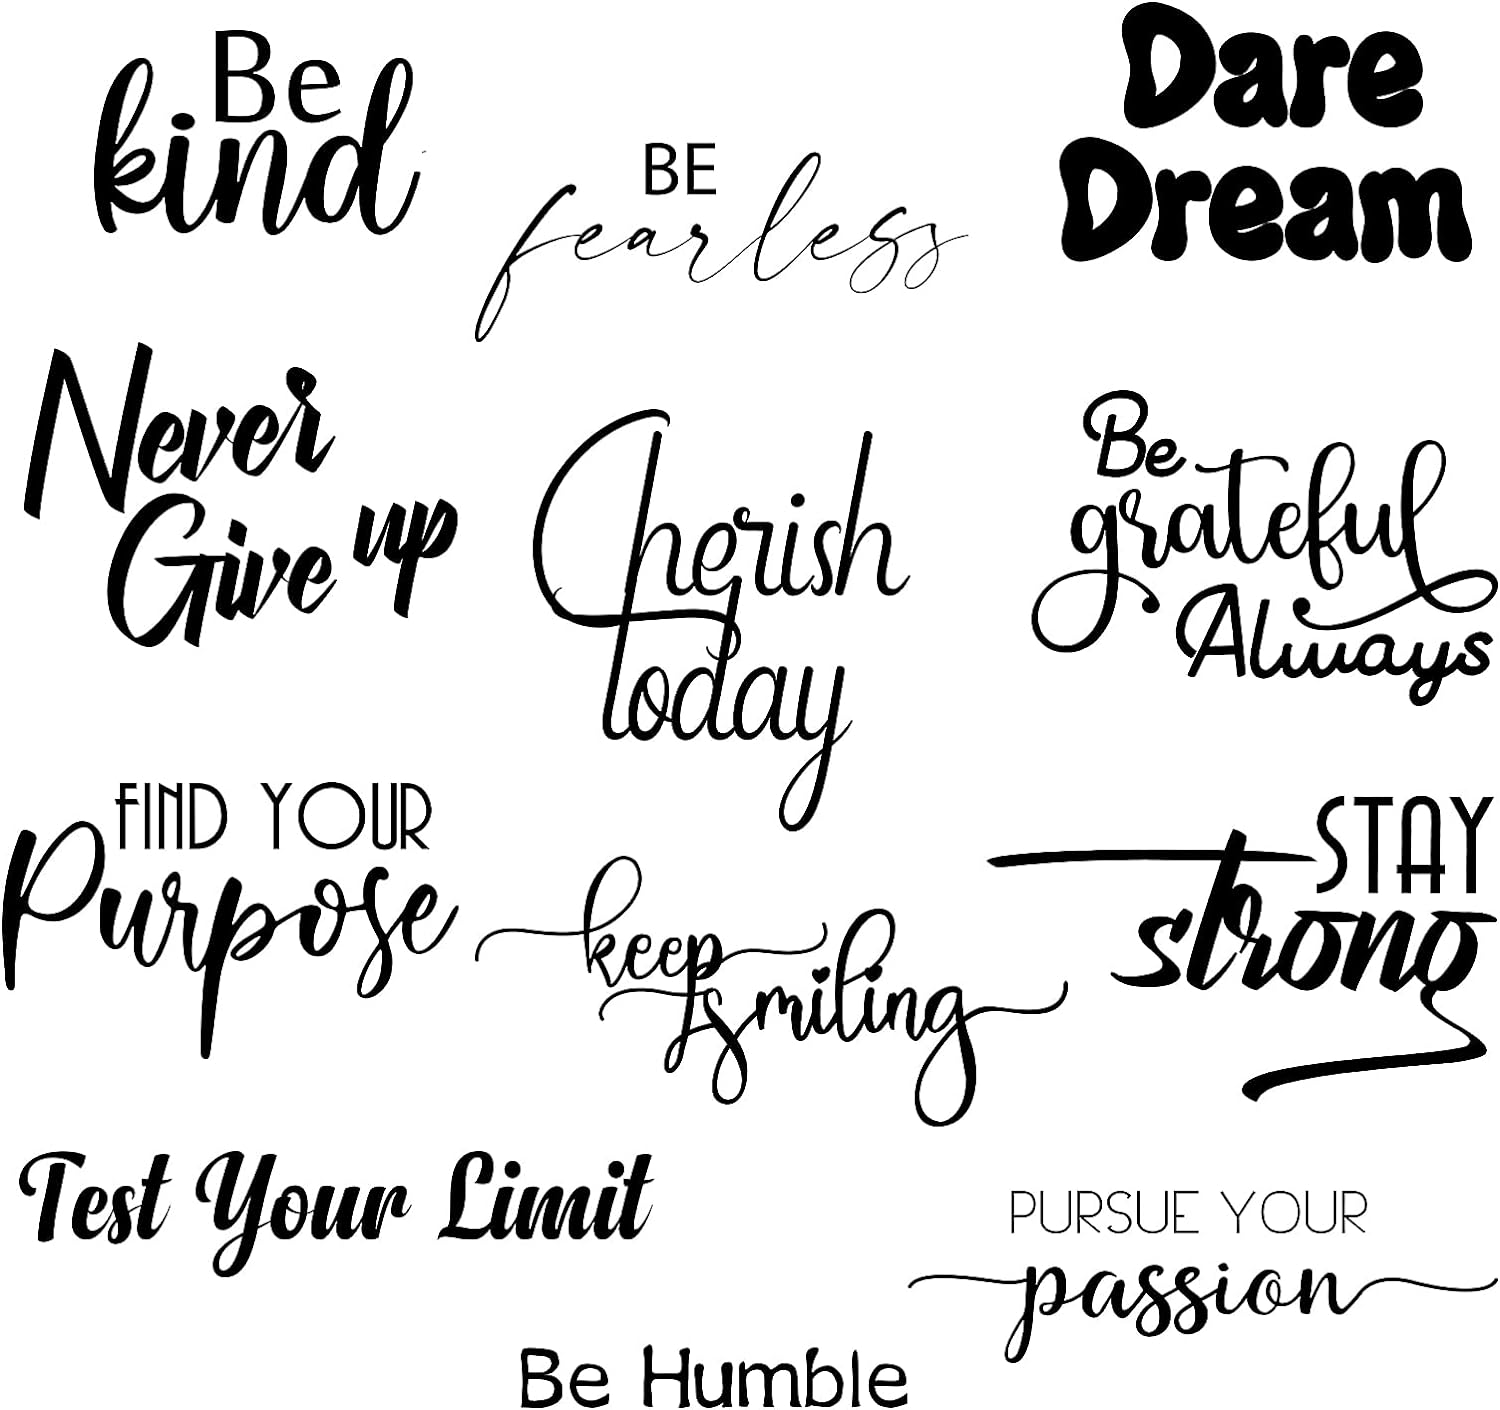 Be
kind
BE
fearless
Dare
Dream
Never
Give up
Cherish
today
Be
grateful
Always
FIND YOUR
Purpose
keep
smiling
STAY
strong
Test Your Limit
PURSUE YOUR
passion
Be Humble